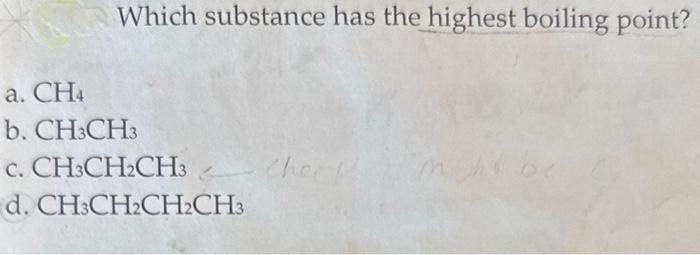 Which substance has the highest boiling point?
a. CH₄
b. CH₃CH₃
c. CH₃CH₂CH₃ check might be C
d. CH₃CH₂CH₂CH₃